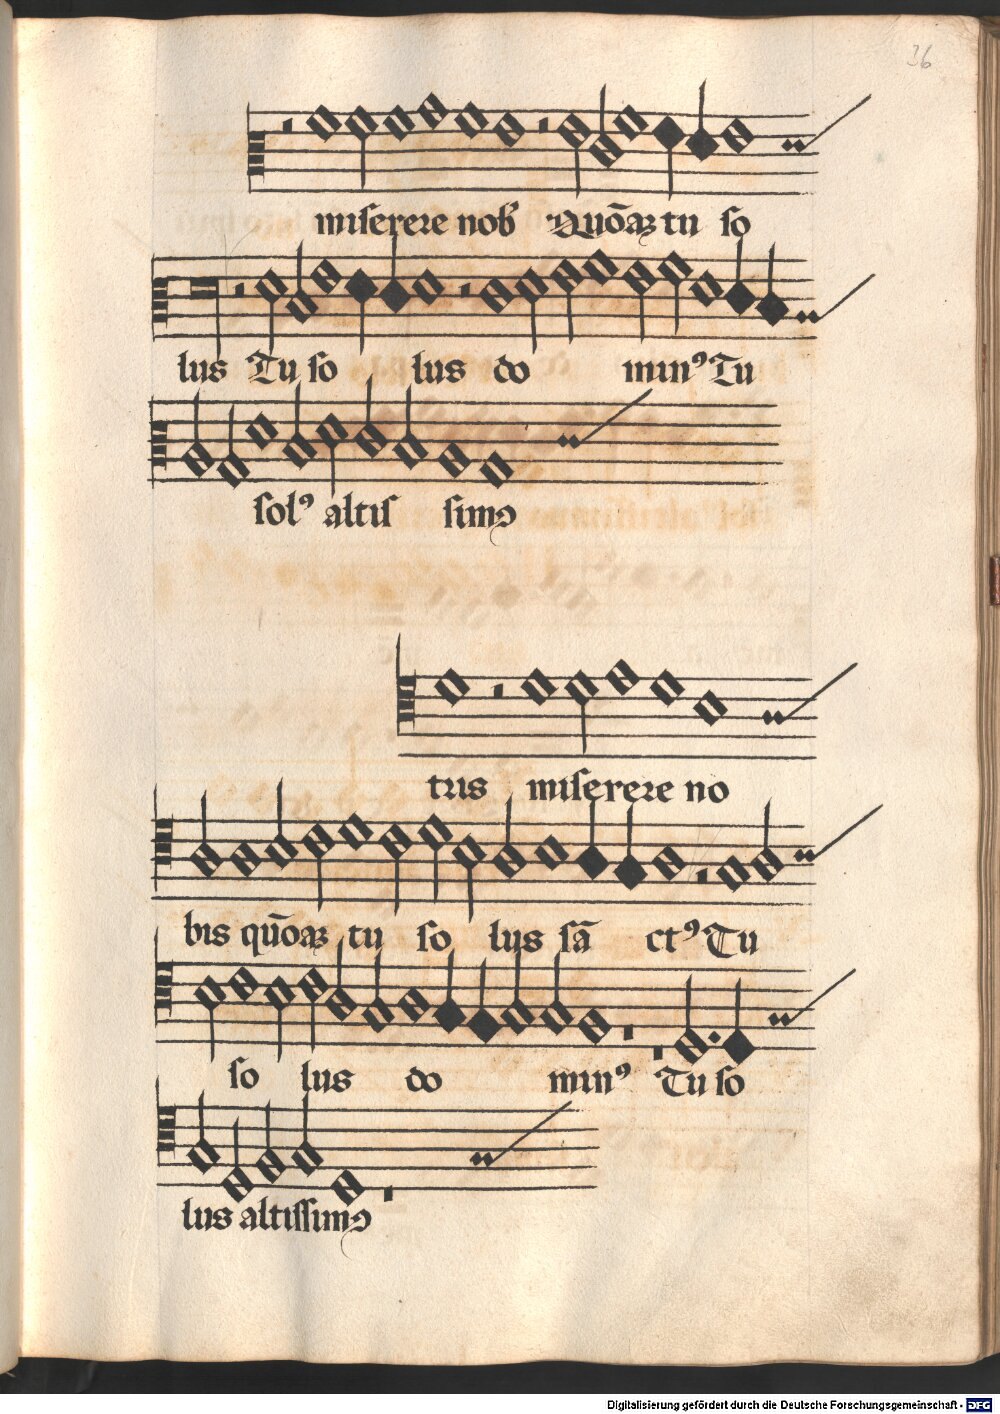 36
miserere nob᾿ Quōaꝝ tu so
lus Tu so lus do minꝰ Tu
solꝰ altis simꝰ
tris miserere no
bis quōaꝝ tu so lus sā ctꝰ Tu
so lus do minꝰ Tu so
lus altissimꝰ
Digitalisierung gefördert durch die Deutsche Forschungsgemeinschaft - DFG